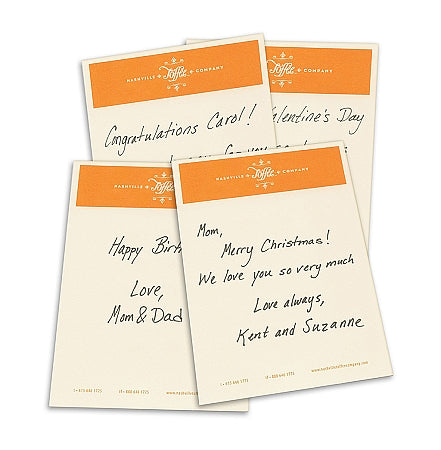 NASHVILLE Toffee COMPANY
Congratulations Carol!
NASHVILLE Toffee COMPANY
Valentine's Day
NASHVILLE Toffee COMPANY
Happy Birth
Love,
Mom & Dad
NASHVILLE Toffee COMPANY
Mom,
Merry Christmas!
We love you so very much
Love always,
Kent and Suzanne
www.nashvilletoffeecompany.com